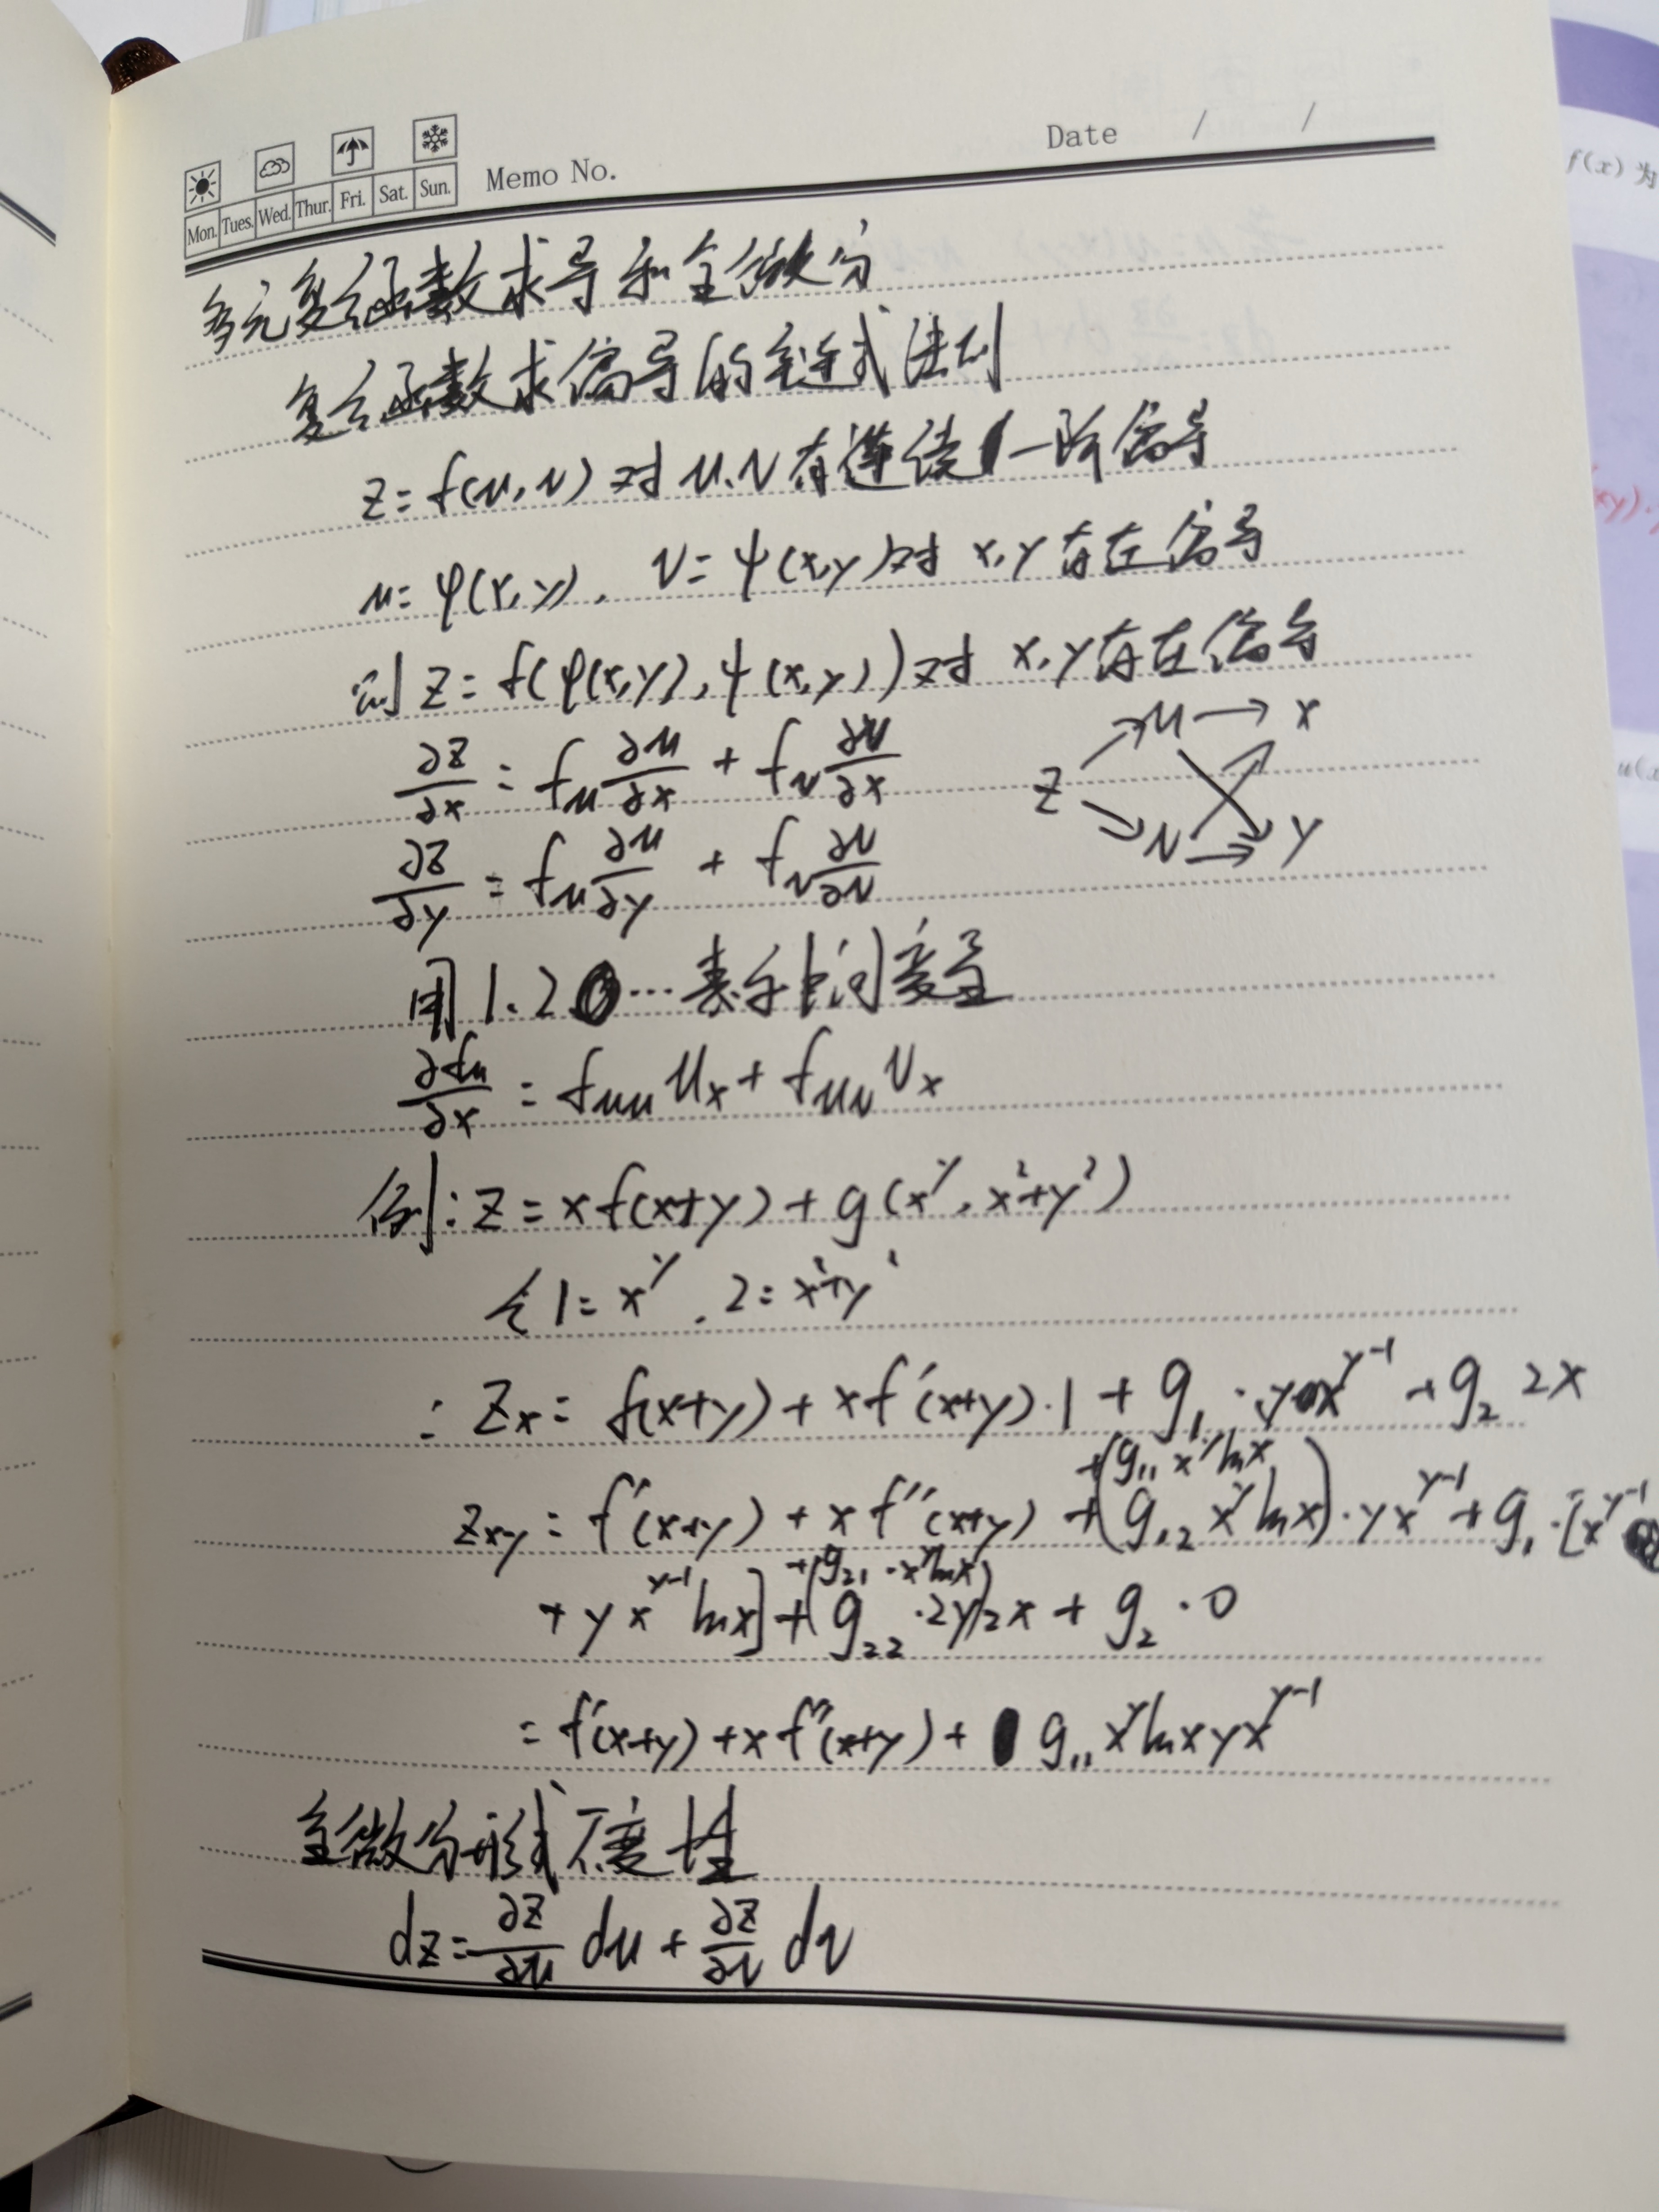 Mon. Tues. Wed. Thur. Fri. Sat. Sun. Memo No. Date / /
多元复合函数求导和全微分
复合函数求偏导的链式法则
z=f(u,v)对u、v有连续一阶偏导
u=φ(x,y), v=ψ(x,y)对x,y存在偏导
则z=f(φ(x,y),ψ(x,y))对x,y存在偏导
∂z/∂x=f_u ∂u/∂x + f_v ∂v/∂x
z u x v y
∂z/∂y=f_u ∂u/∂y + f_v ∂v/∂v
用1、2…表示中间变量
∂f_u/∂x=f_uu u_x+f_uv v_x
例:z=xf(x+y)+g(x^y,x²+y²)
令1=x^y,2=x²+y²
∴z_x=f(x+y)+xf'(x+y)·1+g_1·yx^(y-1)+g_2 2x
+(g_11 x^y lnx
z_xy=f'(x+y)+xf''(x+y)+g_12 x^y lnx)·yx^(y-1)+g_1·[x^(y-1)
+(g_21·x^y lnx)
+yx^(y-1)lnx]+(g_22·2y)2x+g_2·0
=f'(x+y)+xf''(x+y)+g_11 x^y lnx yx^(y-1)
全微分形式不变性
dz=∂z/∂u du+∂z/∂v dv
f(x)为
xy)·
u(x